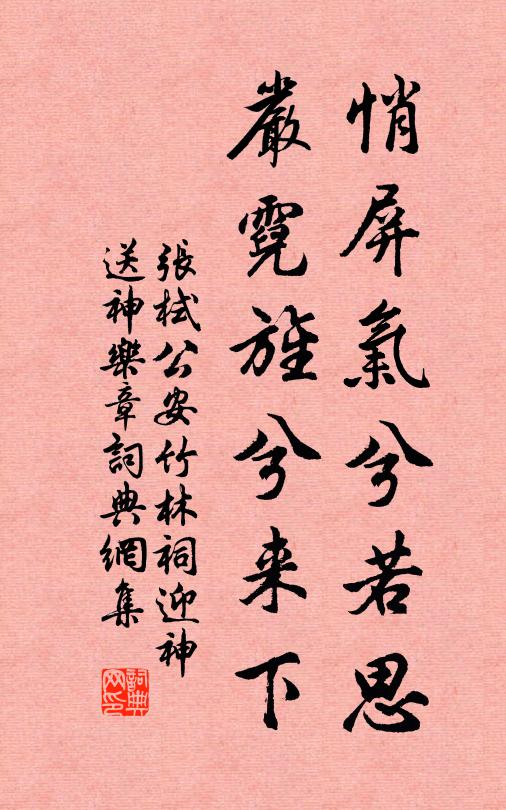 悄屏氣兮若思
嚴霓旌兮来下
張栻公安竹林祠迎神
送神樂章詞典網集
詞典网印